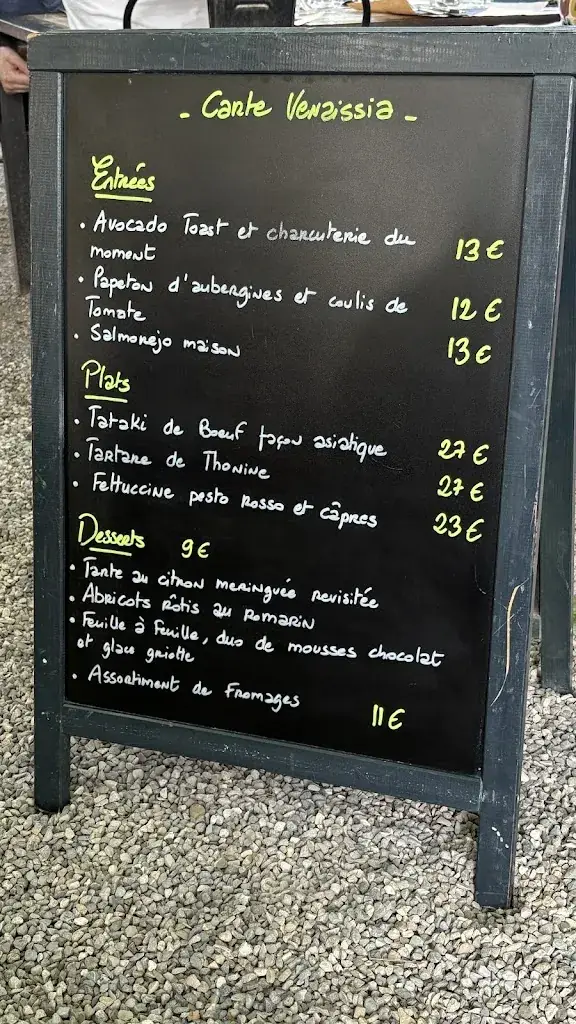 - Carte Venaissia -
Entrées
• Avocado Toast et charcuterie du
moment 13 €
• Papeton d'aubergines et coulis de
Tomate 12 €
• Salmorejo maison 13 €
Plats
• Tataki de Boeuf façon asiatique 27 €
• Tartare de Thonine 27 €
• Fettuccine pesto Rosso et câpres 23 €
Desserts 9 €
• Tarte au citron meringuée revisitée
• Abricots Rôtis au Romarin
• Feuille à Feuille, duo de mousses chocolat
et glace griotte
• Assortiment de Fromages 11 €